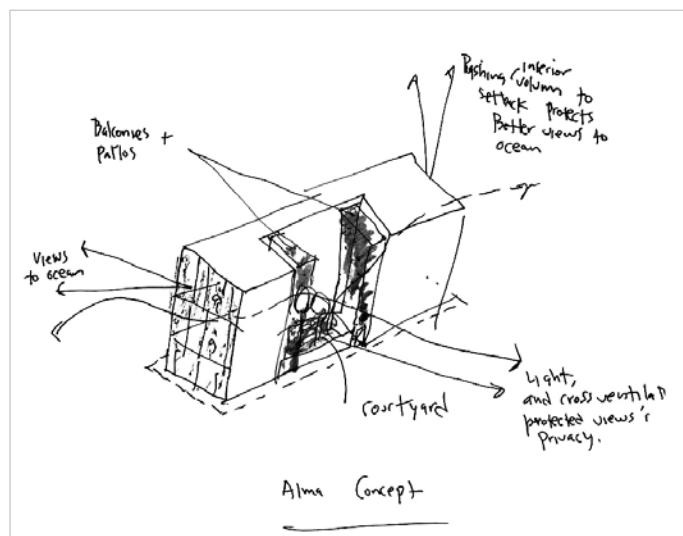 Pushing interior
volum to
setback protects
Better views to
ocean
Balconies +
Patios
Views
to ocean
courtyard
Light,
and cross ventilat
protected views
Privacy.
Alma Concept